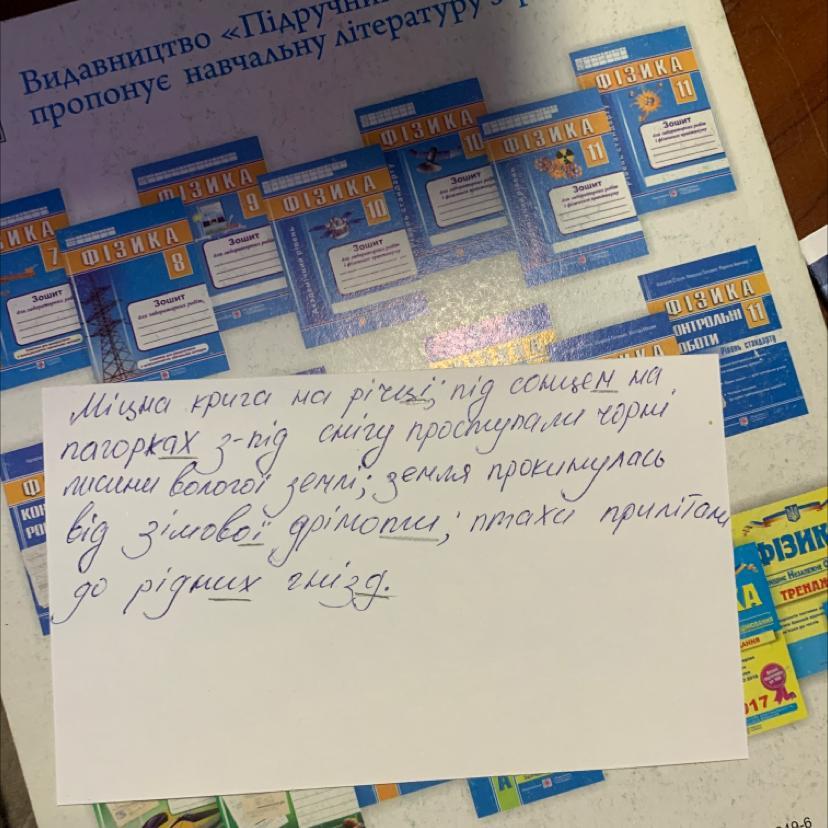 Видавництво «Підручник
пропонує навчальну літературу з
ФІЗИКА 11
Зошит
для лабораторних робіт
і фізичного практикуму
ФІЗИКА 11
Зошит
для лабораторних робіт
і фізичного практикуму
ФІЗИКА 10
Зошит
ФІЗИКА 10
Зошит
для лабораторних робіт
і фізичного практикуму
ФІЗИКА 9
Зошит
для лабораторних робіт
ФІЗИКА 8
Зошит
для лабораторних робіт
7
Зошит
для лабораторних робіт
ФІЗИКА 11
КОНТРОЛЬНІ
РОБОТИ
Рівень стандарту
Міцна крига на річці; під сонцем на
пагорках з-під снігу проступали чорні
лисини вологої землі; земля прокинулась
від зімової дрімоти; птахи прилітали
до рідних гнізд.
ФІЗИК
ТРЕНАЖ
КА
2017
49-6